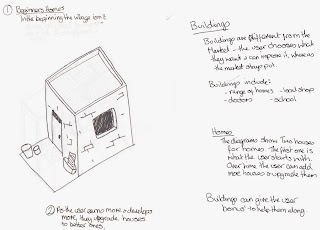 ① Beginners Homes
In the beginning the village isn't
② As the user earns more & develops
more, they upgrade houses
to better ones.
Buildings
Buildings are different from the
Market - the user chooses what
they want & can improve it, where as
the market stays put.
Buildings include:
- range of homes - local shop
- doctors - school
Homes
The diagrams show two houses
for homes. The first one is
what the user starts with.
Over time the user can add
more houses & upgrade them
Buildings can give the user
'bonus' to help them along